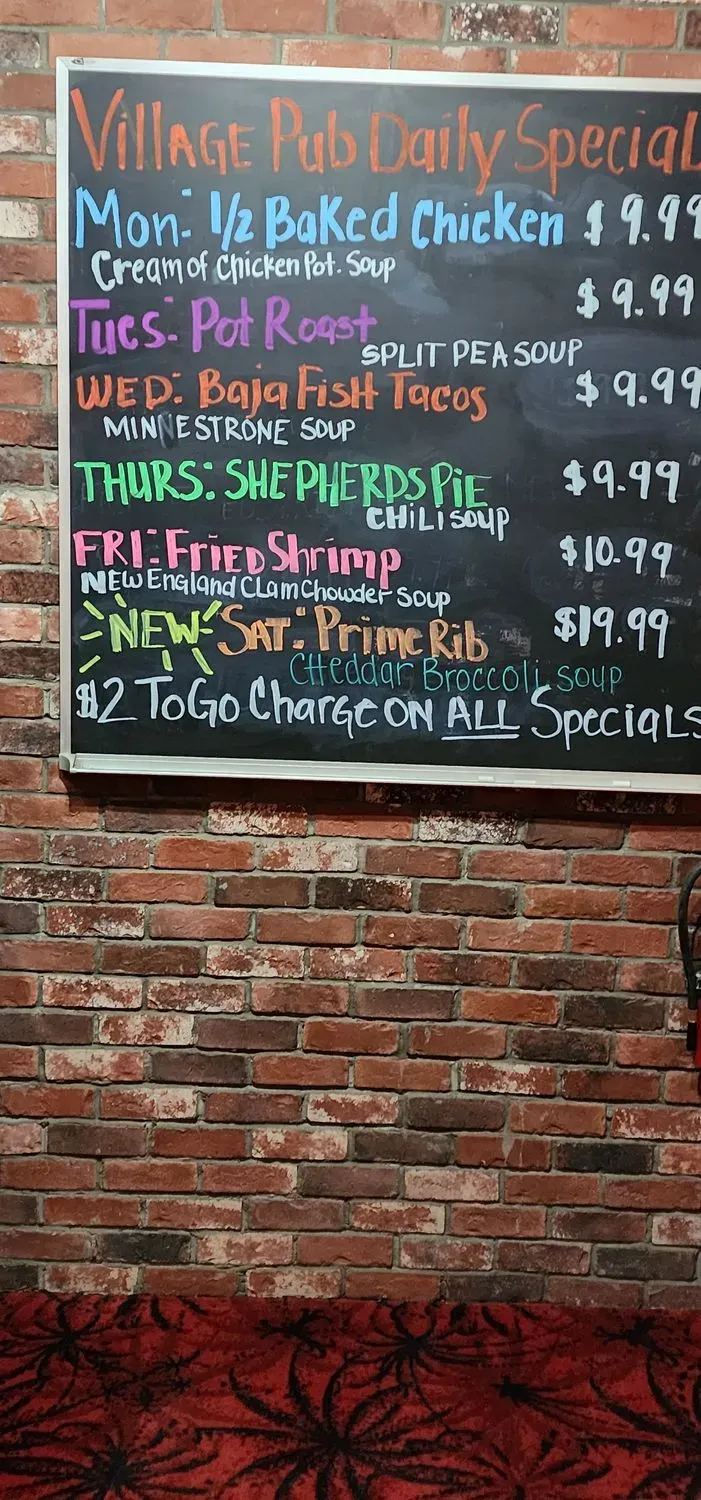 Village Pub Daily Special
Mon: 1/2 Baked Chicken $9.99
Cream of Chicken Pot. Soup
$9.99
Tues: Pot Roast
SPLIT PEA SOUP
WED: Baja Fish Tacos $9.99
MINNESTRONE SOUP
THURS: SHEPHERDS PiE $9.99
CHiLi SOUP
FRI: FriED Shrimp $10.99
NEW England Clam Chowder Soup
NEW SAT: Prime Rib $19.99
CHeddar Broccoli soup
$2 ToGo Charge ON ALL Specials